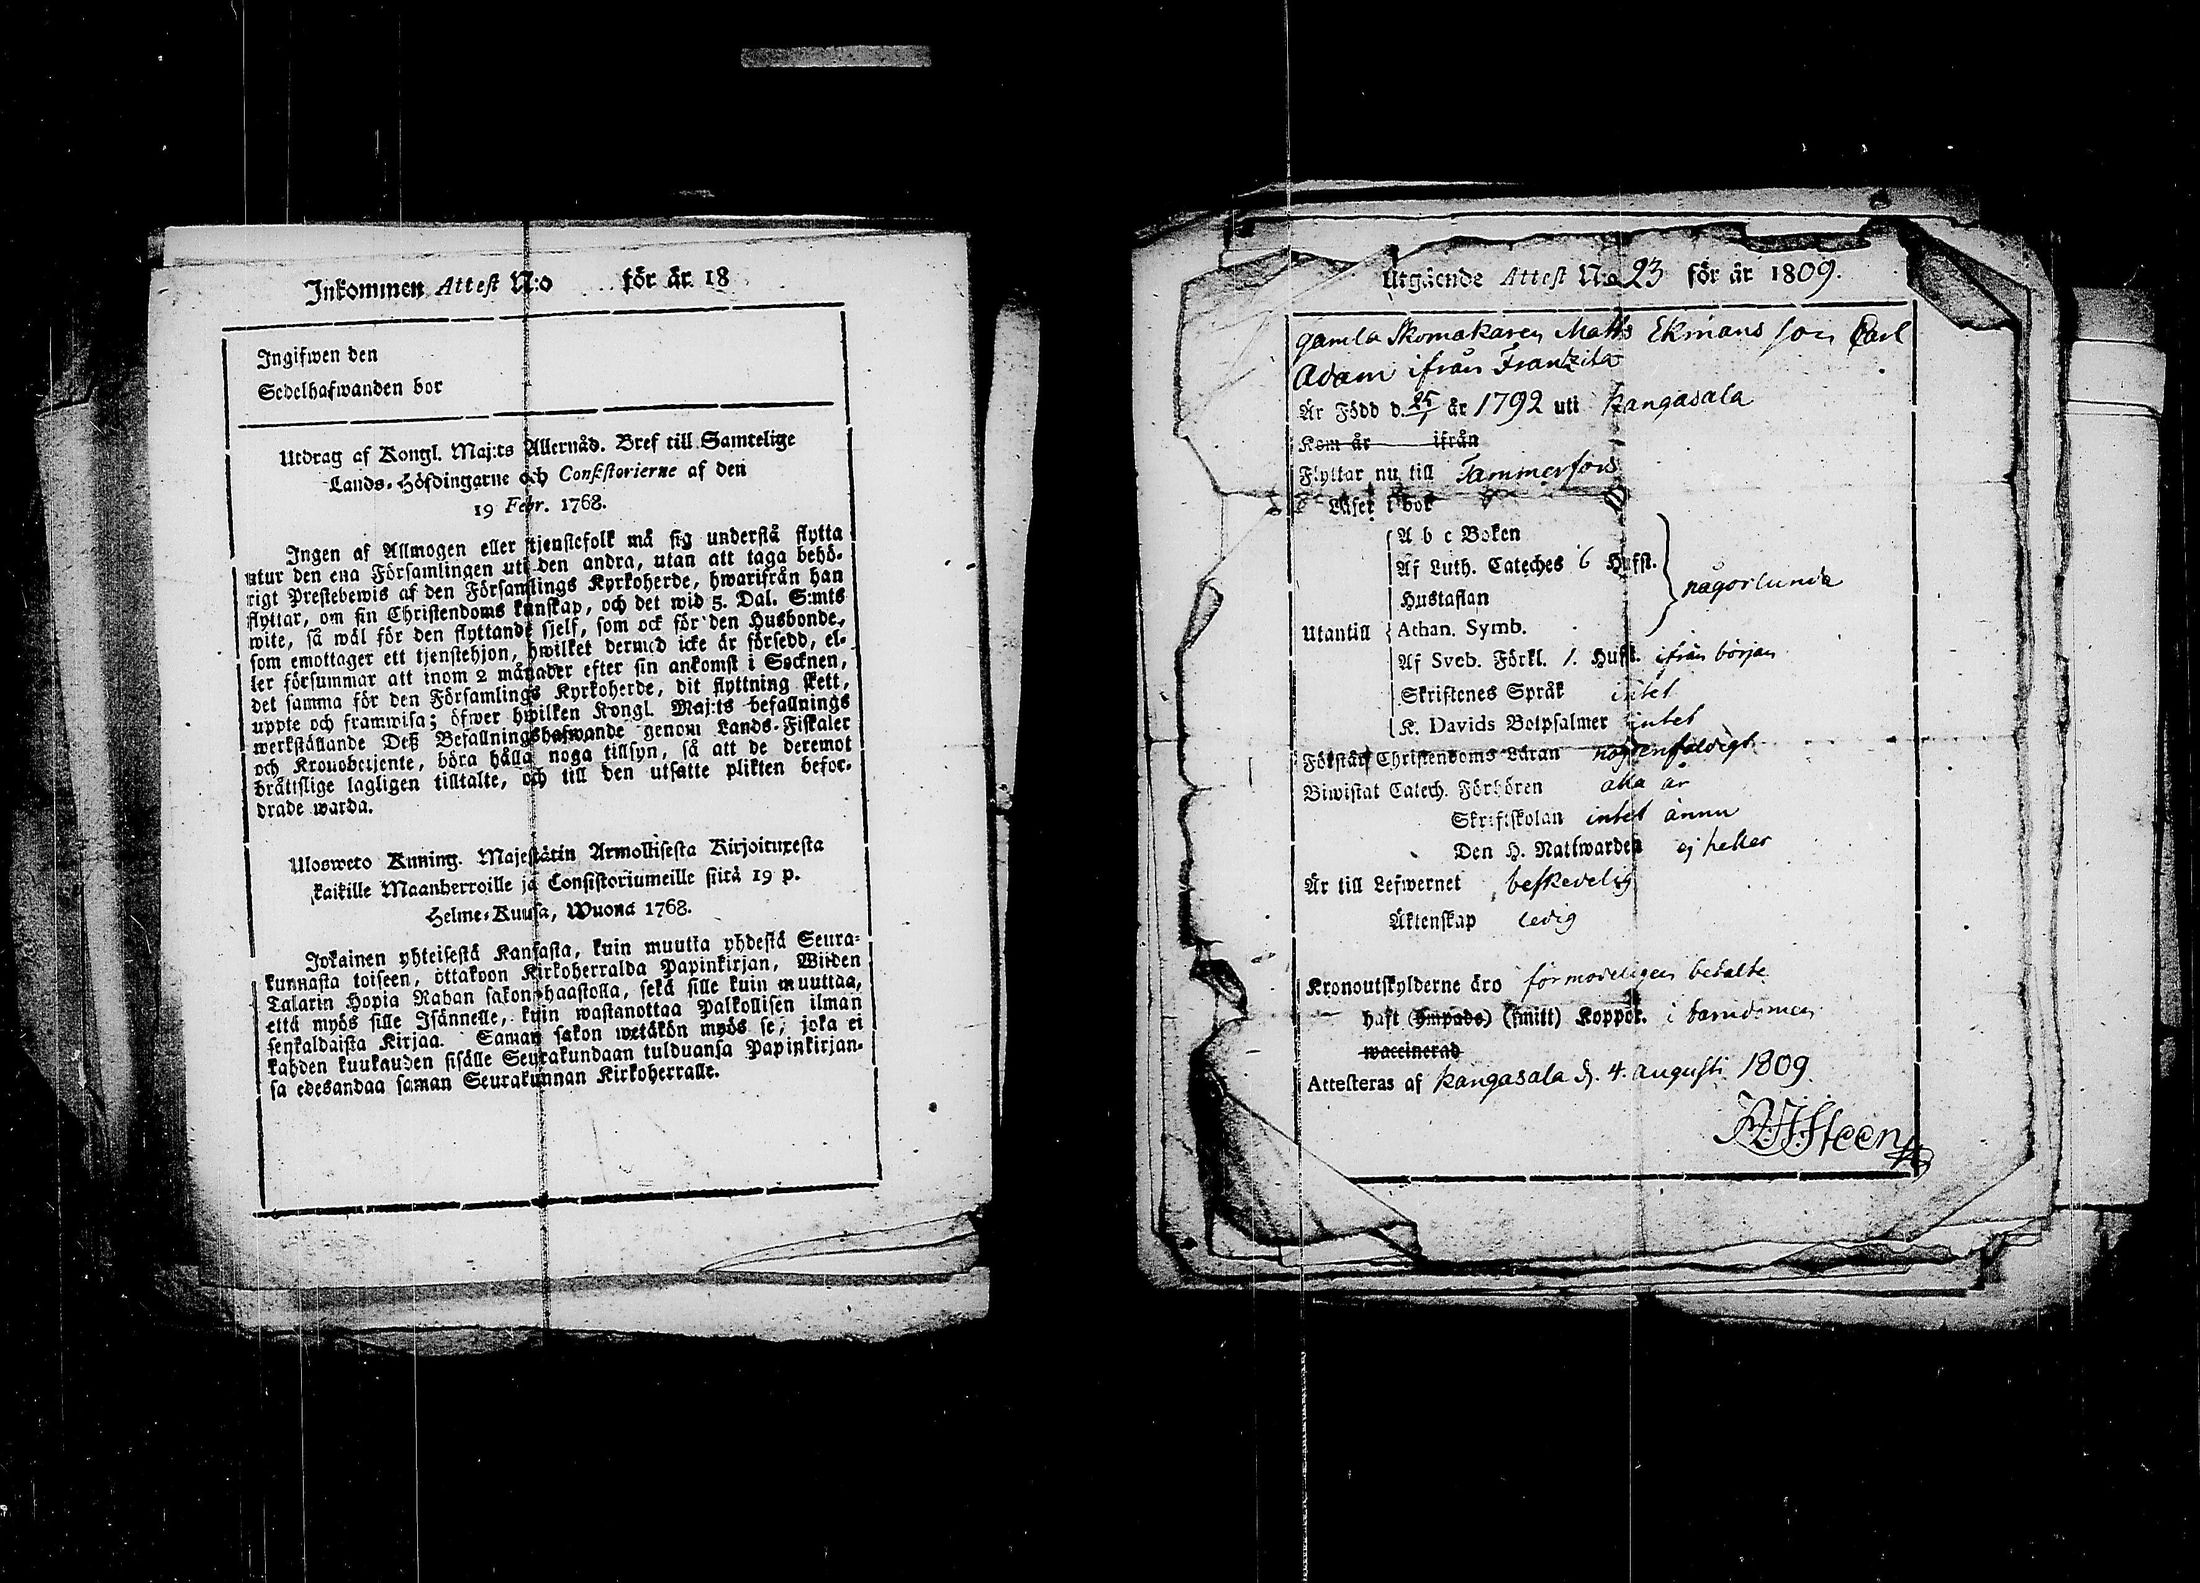 Inkommen Attest N:o för år 18
Ingifwen den
Sedelhafwanden bor
Utdrag af Kongl. Maj:ts Allernåd. Bref till Samtelige
Lands-Höfdingarne och Consistorierne af den
19 Febr. 1768.
Ingen af Allmogen eller tjenstefolk må sig understå flytta
utur den ena Församlingen uti den andra, utan att taga behö-
rigt Prestebewis af den Församlings Kyrkoherde, hwarifrån han
flyttar, om sin Christendoms kunskap, och det wid 5. Dal. S:mts
wite, så wäl för den flyttande sjelf, som ock för den Husbonde,
som emottager ett tjenstehjon, hwilket dermed icke är försedd, el-
ler försummar att inom 2 månader efter sin ankomst i Socknen,
det samma för den Församlings Kyrkoherde, dit flyttning skett,
uppte och framwisa; öfwer hwilken Kongl. Maj:ts befallnings
werkställande Deß Befallningshafwande genom Lands-Fiskaler
och Kronobetjente, böra hålla noga tillsyn, så att de deremot
brättslige lagligen tilltalte, och till den utsatte plikten befor-
drade warda.
Ulosweto Kuning. Majestätin Armollisesta Kirjoituxesta
kaikille Maanherroille ja Consistoriumeille siitä 19 p.
Helme-Kuusa, Wuona 1768.
Jokainen yhteisestä Kansasta, kuin muutta yhdestä Seura-
kunnasta toiseen, ottakoon Kirkoherralda Papinkirjan, Wiiden
Talarin Hopia Rahan sakon haastolla, sekä sille kuin muuttaa,
että myös sille Isännelle, kuin wastanottaa Palkollisen ilman
senkaldaista Kirjaa. Saman sakon wetäkön myös se, joka ei
kahden kuukauden sisälle Seurakundaan tulduansa Papinkirjan-
sa edesandaa saman Seurakunnan Kirkoherralle.
Utgående Attest N:o 23 för år 1809.
gamla Skomakaren Matts Ekmans son Carl
Adam ifrån Frantzila
Är Född d. 25/1 år 1792 uti Kangasala
Kom år ifrån
Flyttar nu till Tammerfors
Läser i bok
A b c Boken
Af Luth. Cateches 6 Hufst.
Hustaflan
någorlunda
Utantill Athan. Symb.
Af Sveb. Förkl. 1. Hufst. ifrån början
Skriftenes Språk intet
K. Davids Botpsalmer intet
Förstår Christendoms Läran någ enfaldigt
Biwistat Catech. Förhören alla år
Skriftskolan intet ännu
Den H. Nattwarden ej heller
Är till Lefwernet beskedelig
Äktenskap ledig
Kronoutskylderne äro förmodeligen betalte
haft (ympade) (smitt) Koppor. i barndomen
waccinerad
Attesteras af Kangasala d. 4. augusti 1809
Steen